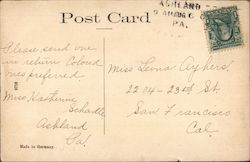 Post Card
ASHLAND
PA.
Please send one
in return Colored
ones preferred
Miss Katherine
Ashland
Pa.
Miss Leona Ayhers
2224 - 23rd St.
San Francisco
Cal.
Made in Germany.